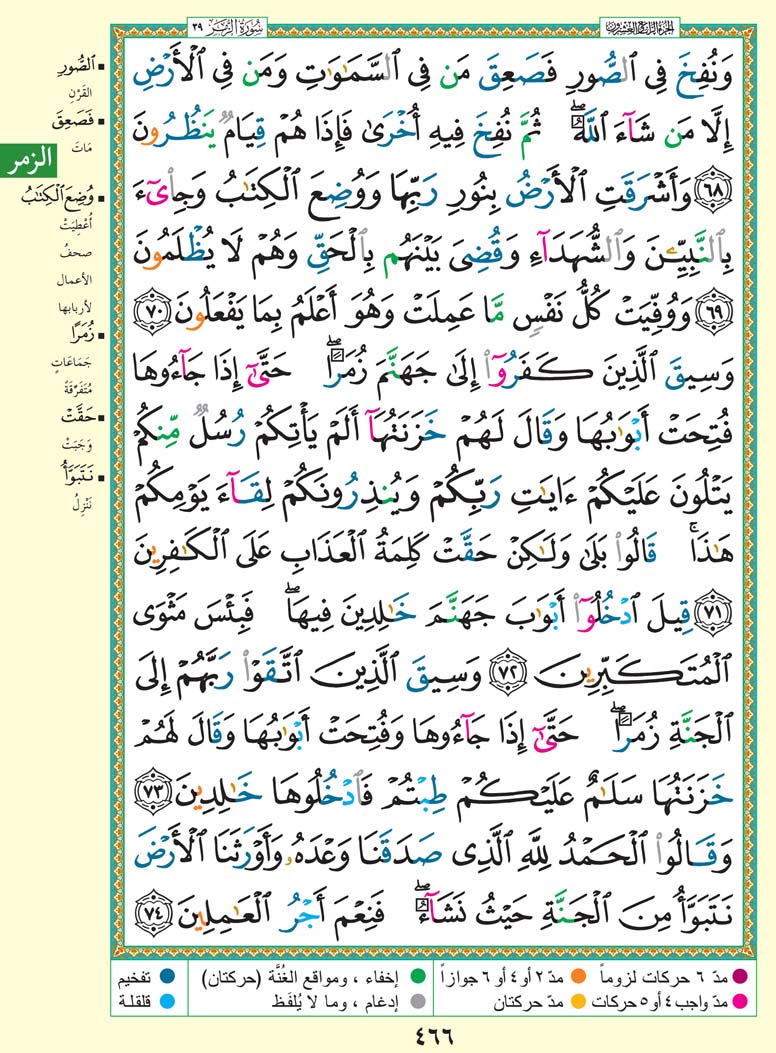 الجزء الرابع والعشرون
سُورَةُ الزُّمَر ٣٩
وَنُفِخَ فِى ٱلصُّورِ فَصَعِقَ مَن فِى ٱلسَّمَٰوَٰتِ وَمَن فِى ٱلْأَرْضِ
إِلَّا مَن شَآءَ ٱللَّهُ ۖ ثُمَّ نُفِخَ فِيهِ أُخْرَىٰ فَإِذَا هُمْ قِيَامٌ يَنظُرُونَ
﴿٦٨﴾ وَأَشْرَقَتِ ٱلْأَرْضُ بِنُورِ رَبِّهَا وَوُضِعَ ٱلْكِتَٰبُ وَجِا۟ىٓءَ
بِٱلنَّبِيِّۦنَ وَٱلشُّهَدَآءِ وَقُضِىَ بَيْنَهُم بِٱلْحَقِّ وَهُمْ لَا يُظْلَمُونَ
﴿٦٩﴾ وَوُفِّيَتْ كُلُّ نَفْسٍ مَّا عَمِلَتْ وَهُوَ أَعْلَمُ بِمَا يَفْعَلُونَ ﴿٧٠﴾
وَسِيقَ ٱلَّذِينَ كَفَرُوٓا۟ إِلَىٰ جَهَنَّمَ زُمَرًا ۖ حَتَّىٰٓ إِذَا جَآءُوهَا
فُتِحَتْ أَبْوَٰبُهَا وَقَالَ لَهُمْ خَزَنَتُهَآ أَلَمْ يَأْتِكُمْ رُسُلٌ مِّنكُمْ
يَتْلُونَ عَلَيْكُمْ ءَايَٰتِ رَبِّكُمْ وَيُنذِرُونَكُمْ لِقَآءَ يَوْمِكُمْ
هَٰذَا ۚ قَالُوا۟ بَلَىٰ وَلَٰكِنْ حَقَّتْ كَلِمَةُ ٱلْعَذَابِ عَلَى ٱلْكَٰفِرِينَ
﴿٧١﴾ قِيلَ ٱدْخُلُوٓا۟ أَبْوَٰبَ جَهَنَّمَ خَٰلِدِينَ فِيهَا ۖ فَبِئْسَ مَثْوَى
ٱلْمُتَكَبِّرِينَ ﴿٧٢﴾ وَسِيقَ ٱلَّذِينَ ٱتَّقَوْا۟ رَبَّهُمْ إِلَى
ٱلْجَنَّةِ زُمَرًا ۖ حَتَّىٰٓ إِذَا جَآءُوهَا وَفُتِحَتْ أَبْوَٰبُهَا وَقَالَ لَهُمْ
خَزَنَتُهَا سَلَٰمٌ عَلَيْكُمْ طِبْتُمْ فَٱدْخُلُوهَا خَٰلِدِينَ ﴿٧٣﴾
وَقَالُوا۟ ٱلْحَمْدُ لِلَّهِ ٱلَّذِى صَدَقَنَا وَعْدَهُۥ وَأَوْرَثَنَا ٱلْأَرْضَ
نَتَبَوَّأُ مِنَ ٱلْجَنَّةِ حَيْثُ نَشَآءُ ۖ فَنِعْمَ أَجْرُ ٱلْعَٰمِلِينَ ﴿٧٤﴾
ٱلصُّورِ
القَرْنِ
فَصَعِقَ
مَاتَ
الزمر
وُضِعَ ٱلْكِتَٰبُ
أُعْطِيَتْ
صحفُ
الأعمال
لأربابها
زُمَرًا
جَمَاعَاتٍ
مُتَفَرِّقَةً
حَقَّتْ
وَجَبَتْ
نَتَبَوَّأُ
نَنْزِلُ
مدّ ٦ حركات لزوماً
مدّ ٢ أو ٤ أو ٦ جوازاً
إخفاء ، ومواقع الغُنَّة (حركتان)
تفخيم
مدّ واجب ٤ أو ٥ حركات
مدّ حركتان
إدغام ، وما لا يُلفَظ
قلقلة
٤٦٦